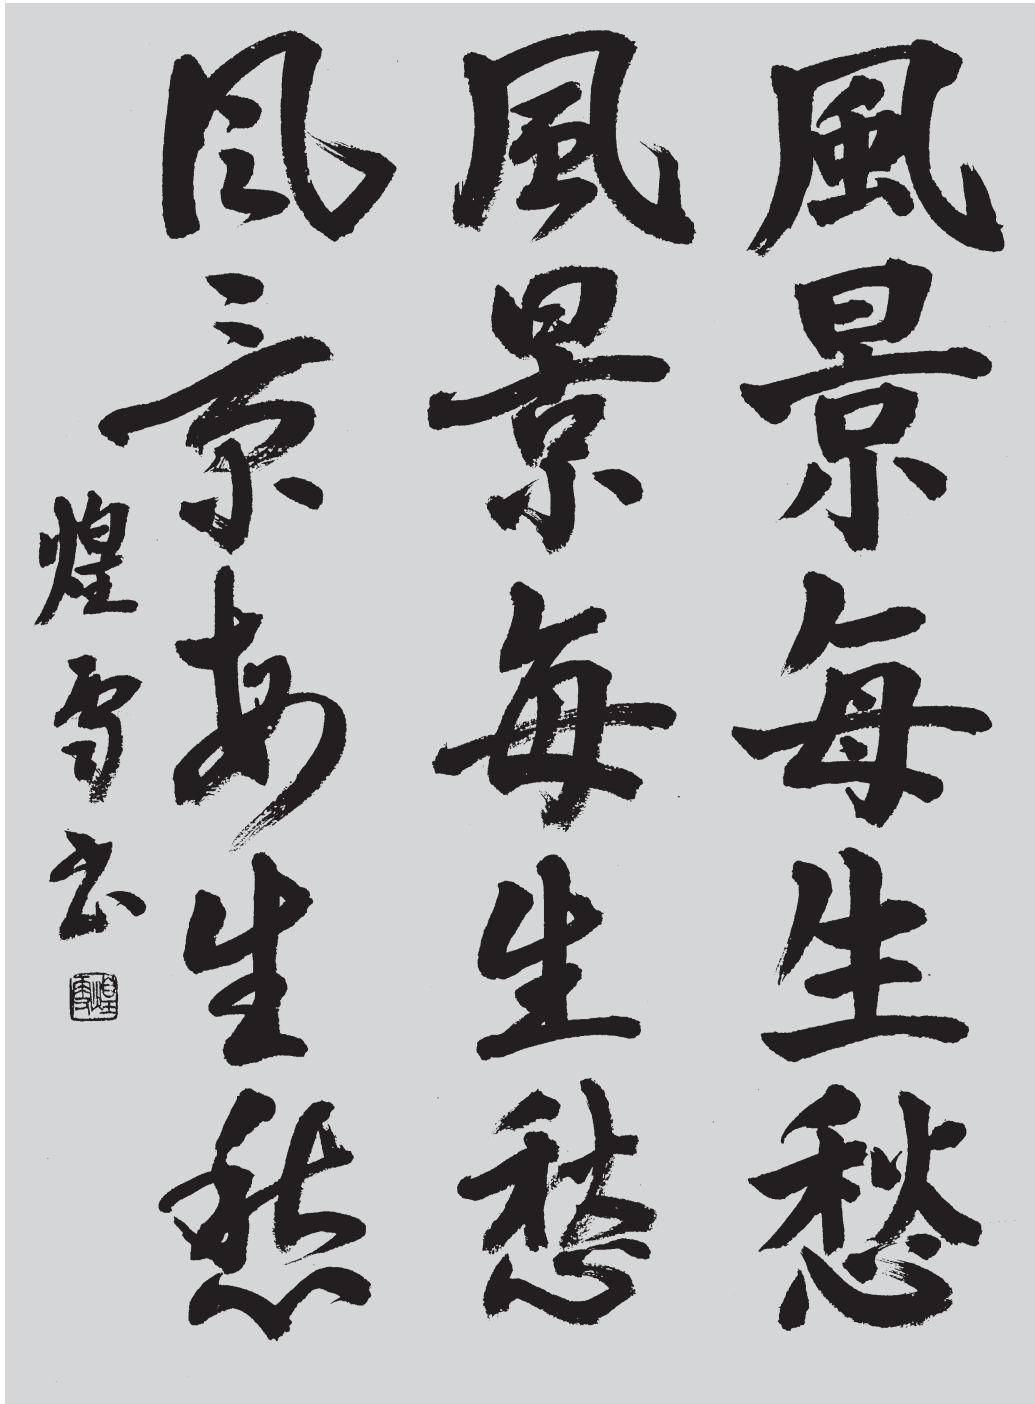 風景每生愁
風景每生愁
风景每生愁
煌雪书
煌雪